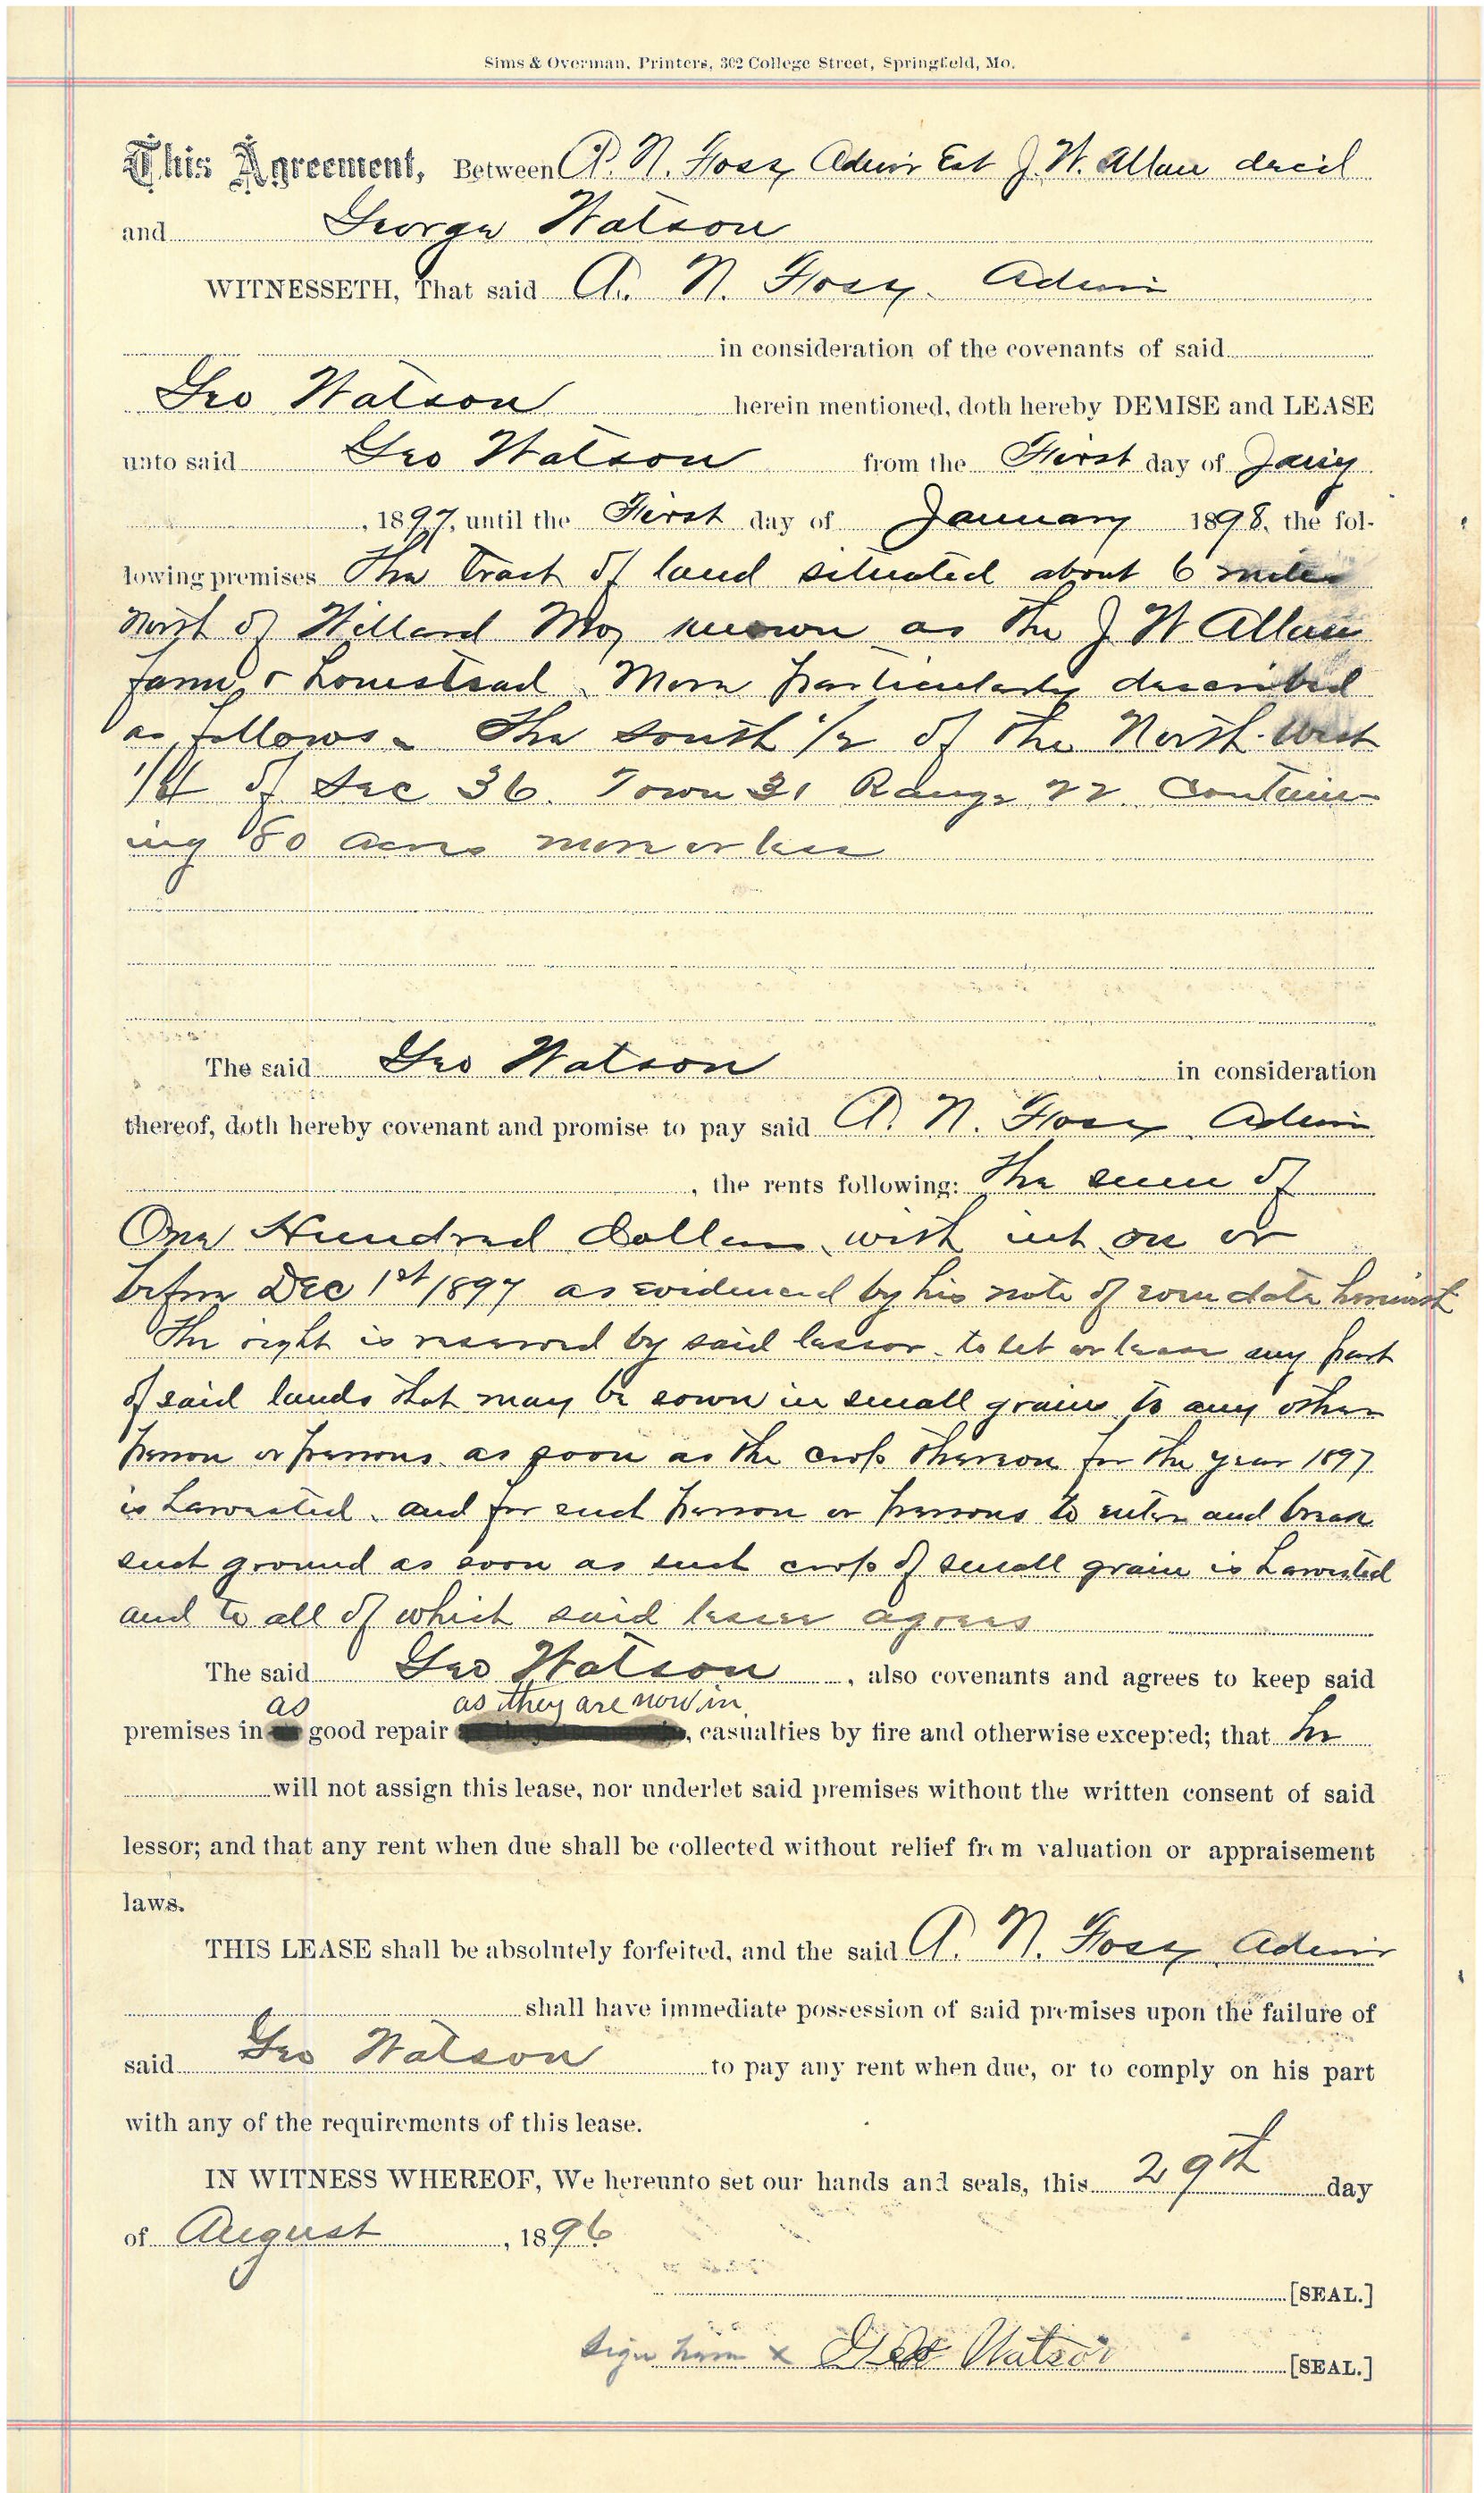 Sims & Overman, Printers, 302 College Street, Springfield, Mo.
This Agreement, Between A. N. Foss, Admr Est J. W. Allan decd
and George Watson
WITNESSETH, That said A. N. Foss, Admr
in consideration of the covenants of said
Geo Watson herein mentioned, doth hereby DEMISE and LEASE
unto said Geo Watson from the First day of Jany
, 1897, until the First day of January 1898, the fol-
lowing premises The tract of land situated about 6 miles
north of Willard Mo, known as the J W Allan
farm & homestead. More particularly described
as follows. The south 1/2 of the North-West
1/4 of Sec 36. Town 31 Range 22. Contain-
ing 80 acres more or less
The said Geo Watson in consideration
thereof, doth hereby covenant and promise to pay said A. N. Foss, Admr
, the rents following: The sum of
One Hundred Dollars with int on or
before Dec 1st 1897 as evidenced by his note of even date herewith
The right is reserved by said lessor to let or lease any part
of said lands that may be sown in small grain to any other
person or persons as soon as the crop thereon for the year 1897
is harvested. and for such person or persons to enter and break
such ground as soon as such crop of small grain is harvested
and to all of which said lessee agrees
The said Geo Watson, also covenants and agrees to keep said
as as they are now in
premises in good repair , casualties by fire and otherwise excepted; that he
will not assign this lease, nor underlet said premises without the written consent of said
lessor; and that any rent when due shall be collected without relief from valuation or appraisement
laws.
THIS LEASE shall be absolutely forfeited, and the said A. N. Foss, Admr
shall have immediate possession of said premises upon the failure of
said Geo Watson to pay any rent when due, or to comply on his part
with any of the requirements of this lease.
IN WITNESS WHEREOF, We hereunto set our hands and seals, this 29th day
of August, 1896
[SEAL.]
Sign here x Geo Watson [SEAL.]